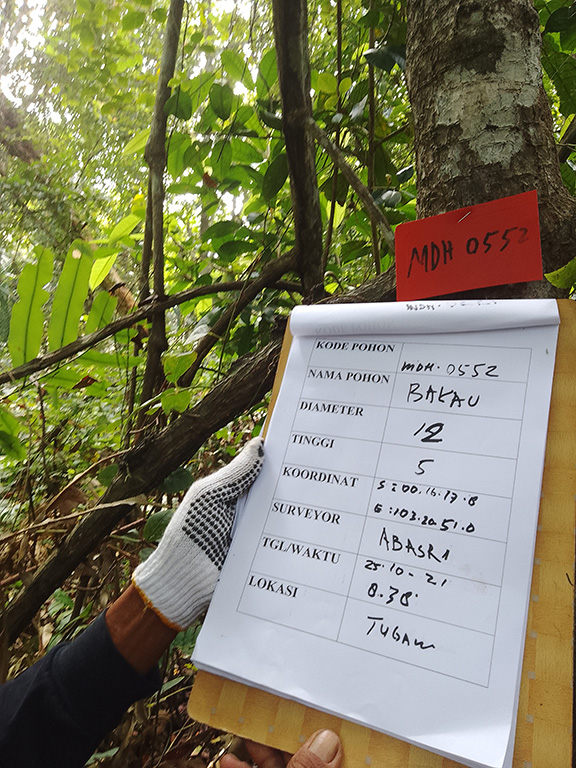 MDH 0552
KODE POHON MDH.0552
NAMA POHON BAKAU
DIAMETER 12
TINGGI 5
KOORDINAT S:00.16.17.8
E:103.20.51.0
SURVEYOR ABASRI
TGL/WAKTU 25-10-21
8.38
LOKASI